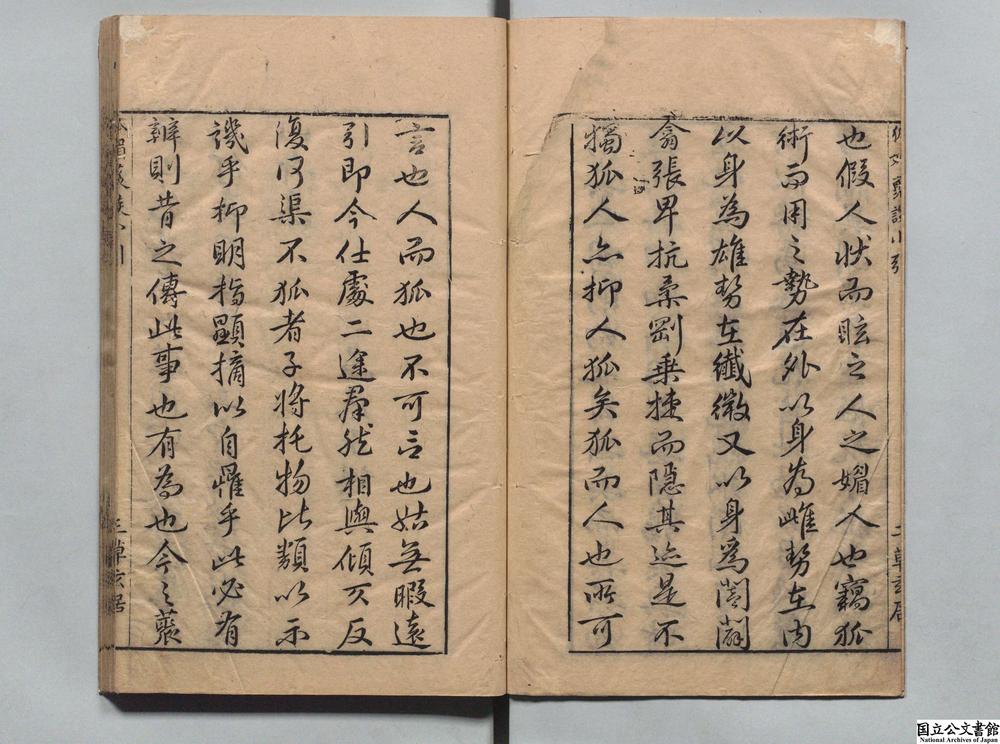 也假人状而眩之人之媚人也竊狐
術而用之勢在外以身為雌勢在内
以身為雄勢在纖微又以身為闔闢
翕張卑抗柔剛乗捷而隠其迹是不
獨狐人亦抑人狐矣狐而人也所可
言也人而狐也不可言也姑無暇遠
引即今仕處二途羣然相與傾仄反
復何渠不狐者子将托物比類以示
譏乎抑明指顯摘以自罹乎此必有
辨則昔之傳此事也有為也今之蒐
国立公文書館
National Archives of Japan